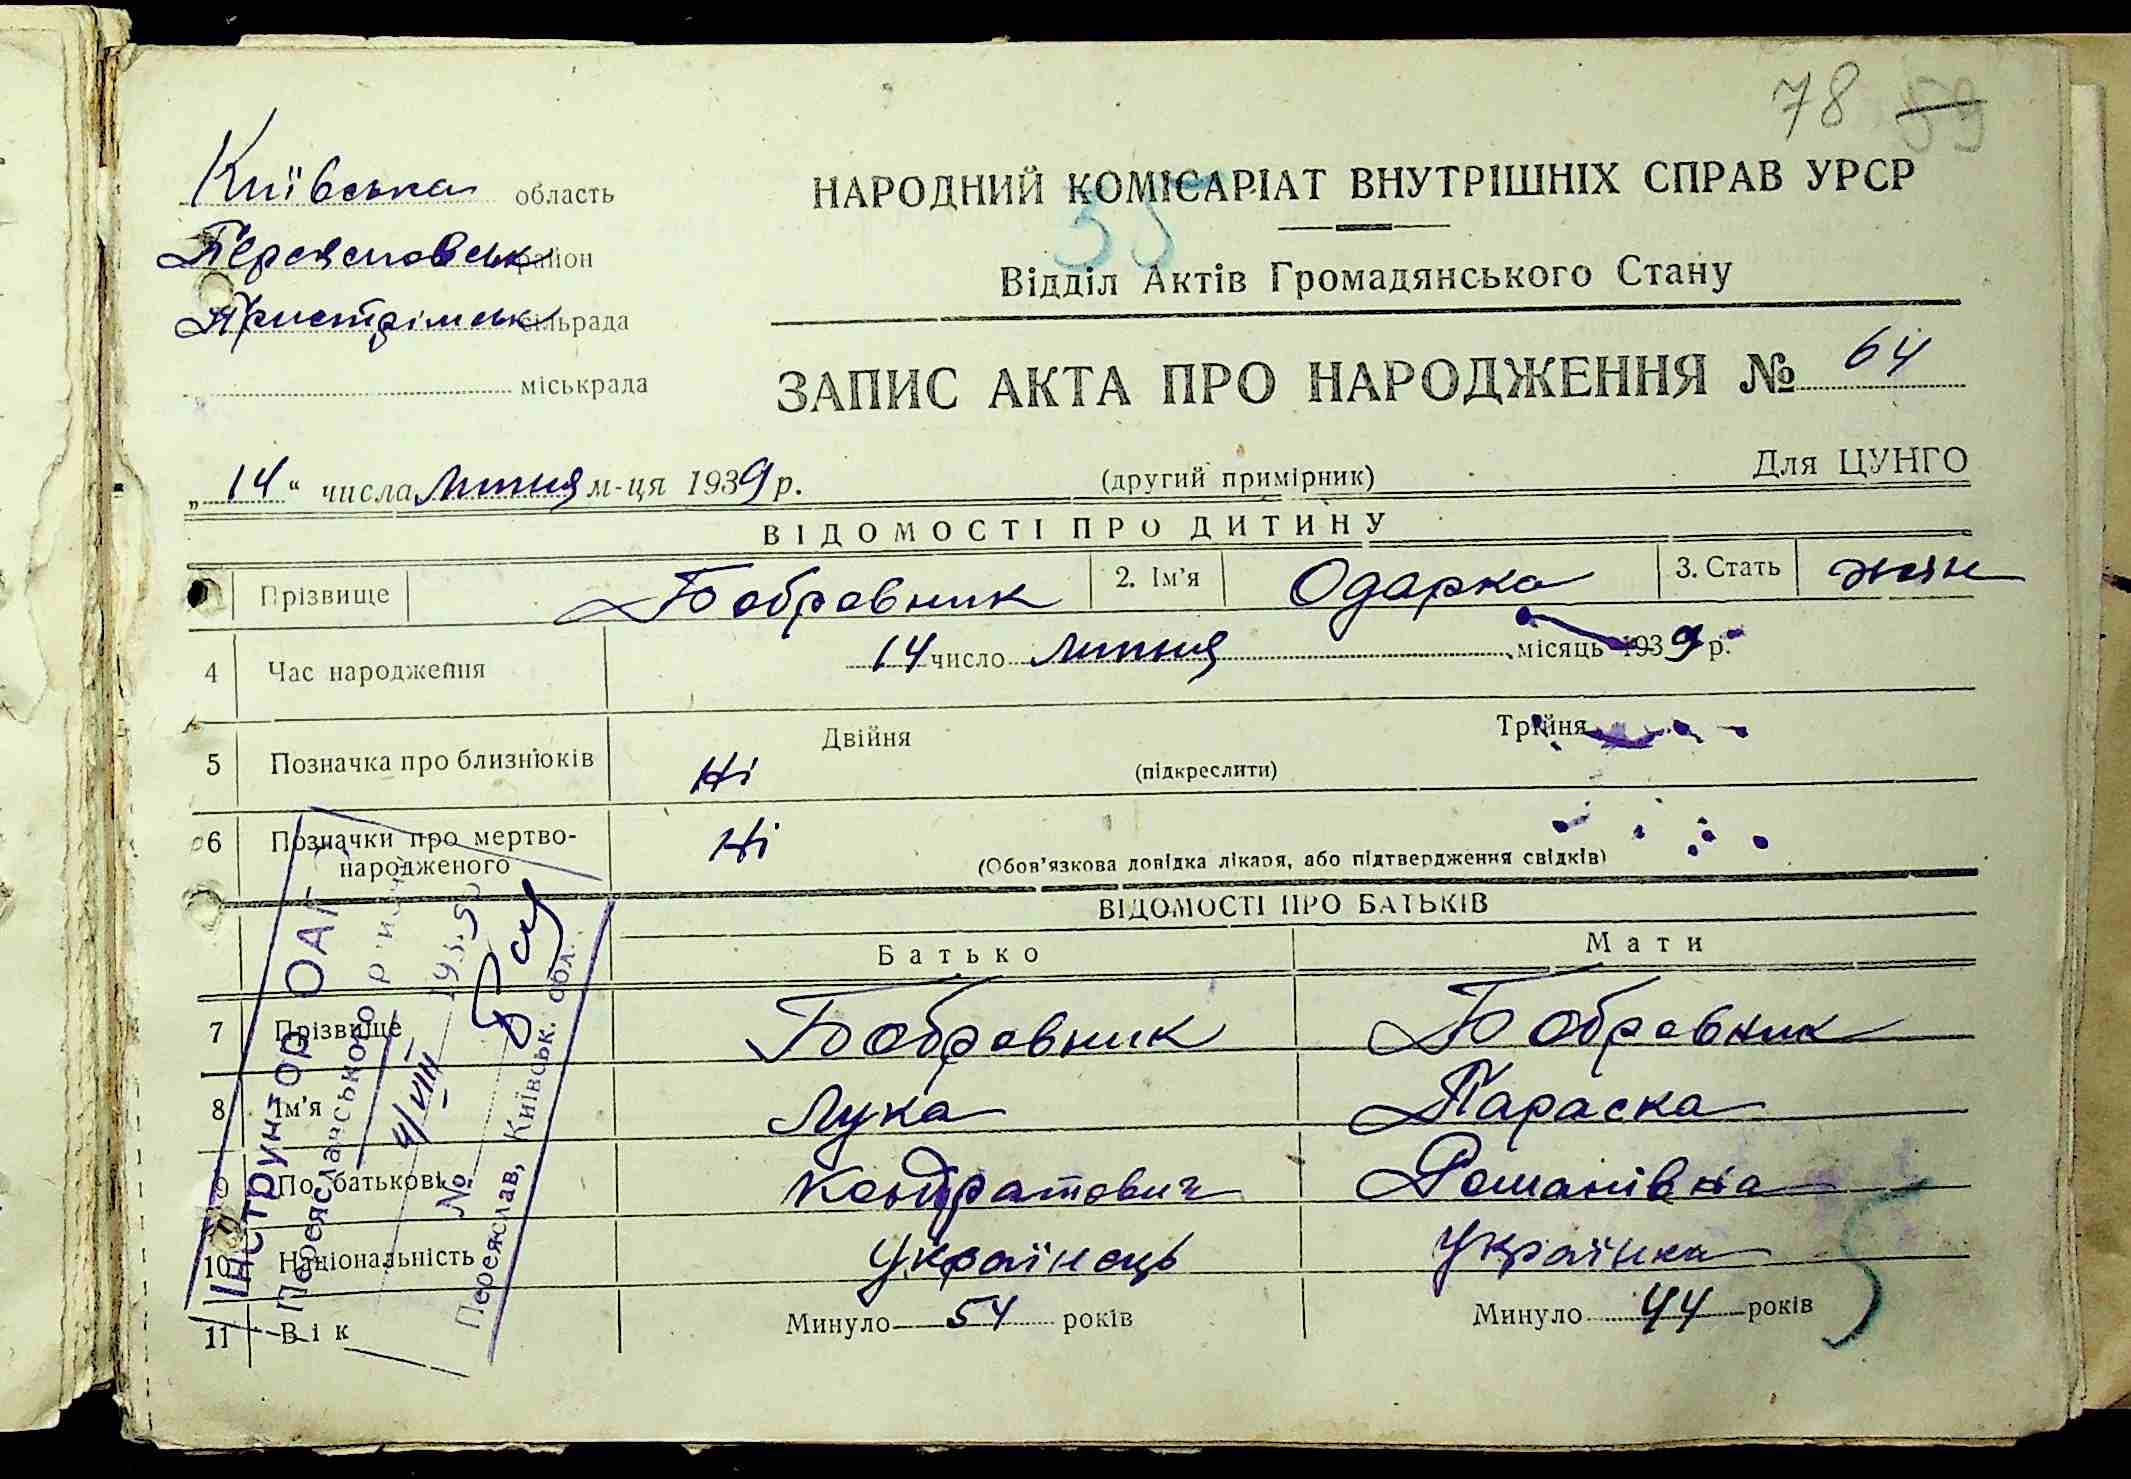 78 59
Київська область
НАРОДНИЙ КОМІСАРІАТ ВНУТРІШНІХ СПРАВ УРСР
35
Переясловськ район
Відділ Актів Громадянського Стану
Пристрімськ сільрада
міськрада
ЗАПИС АКТА ПРО НАРОДЖЕННЯ № 64
„14“ числа липня м-ця 1939 р.
(другий примірник)
Для ЦУНГО
ВІДОМОСТІ ПРО ДИТИНУ
Прізвище Бобровник 2. Ім'я Одарка 3. Стать жін
4 Час народження 14 число липня місяць 1939 р.
5 Позначка про близнюків Ні Двійня (підкреслити) Трійня
6 Позначки про мертво-
народженого Ні (Обов'язкова довідка лікаря, або підтвердження свідків)
ВІДОМОСТІ ПРО БАТЬКІВ
Батько Мати
7 Прізвище Бобровник Бобровник
8 Ім'я Лука Параска
9 По батькові Кондратович Романівна
10 Національність Українець Українка
11 Вік Минуло 54 років Минуло 44 років
5
Інструктор ОАГ
Переяславського
4/VIII
№
Переяслав, Київськ. обл.